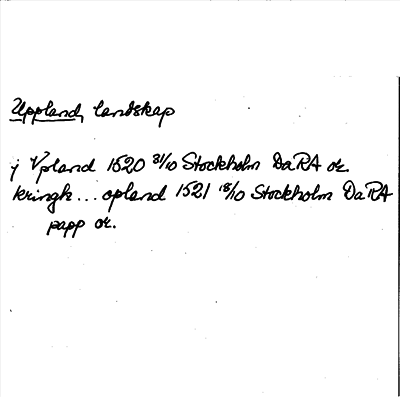 Uppland, landskap
j Vpland 1520 31/10 Stockholm DaRA or.
kringh... opland 1521 18/10 Stockholm DaRA
papp or.